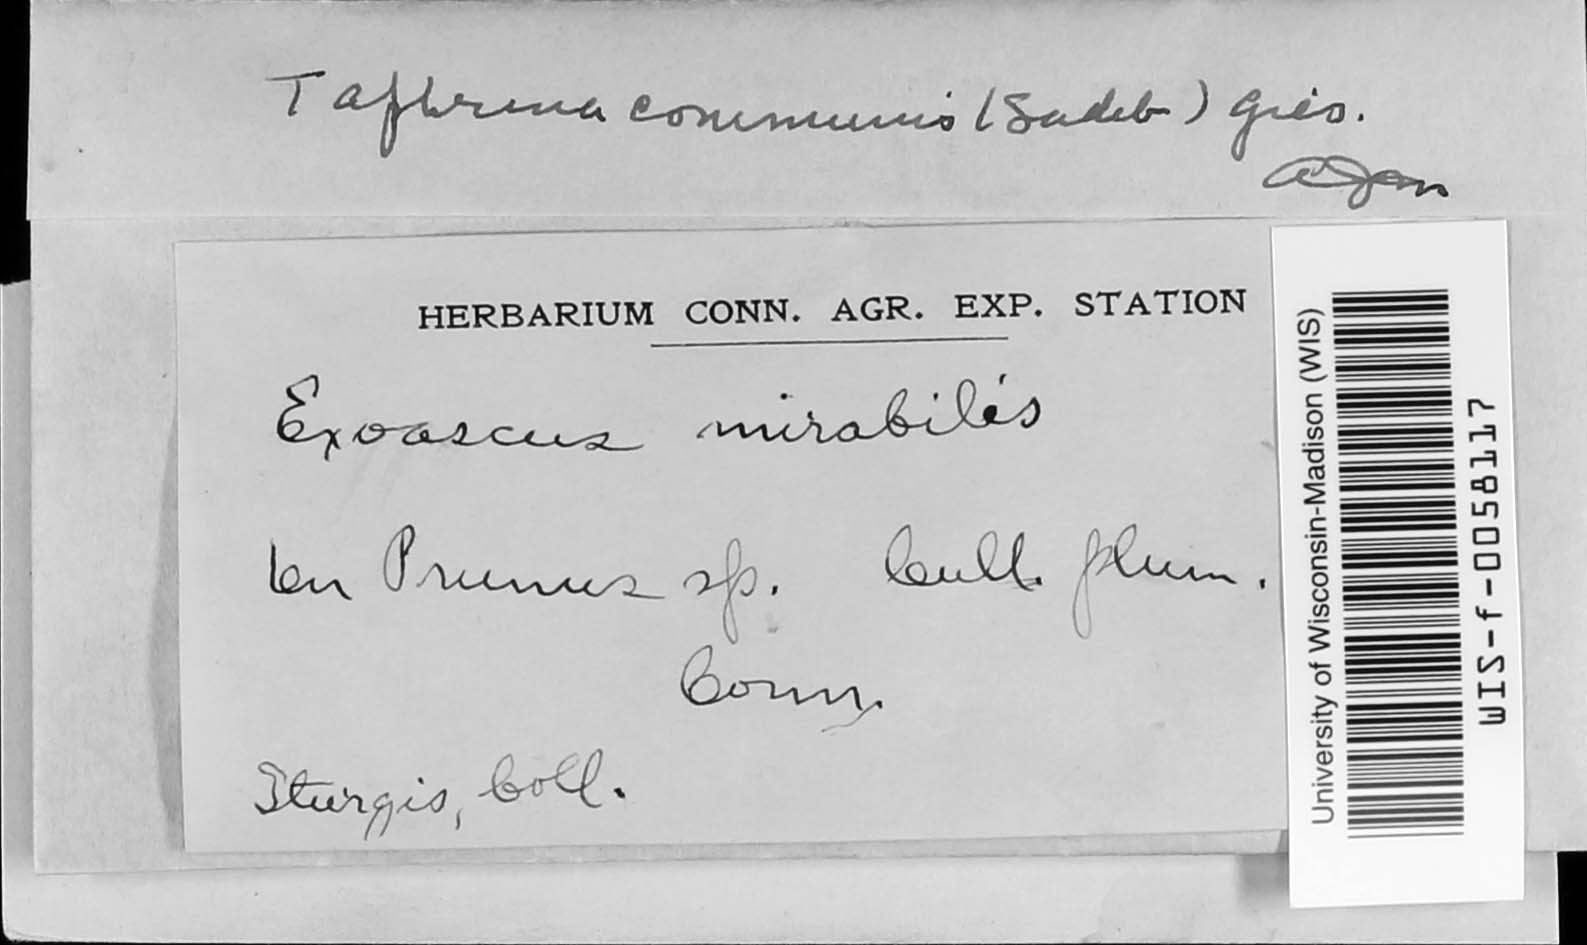 Taphrina communis (Sadeb) Gies.
HERBARIUM CONN. AGR. EXP. STATION
Exoascus mirabilis
on Prunus sp. Cult. plum.
Conn.
Sturgis, Coll.
University of Wisconsin-Madison (WIS)
WIS-f-0058117